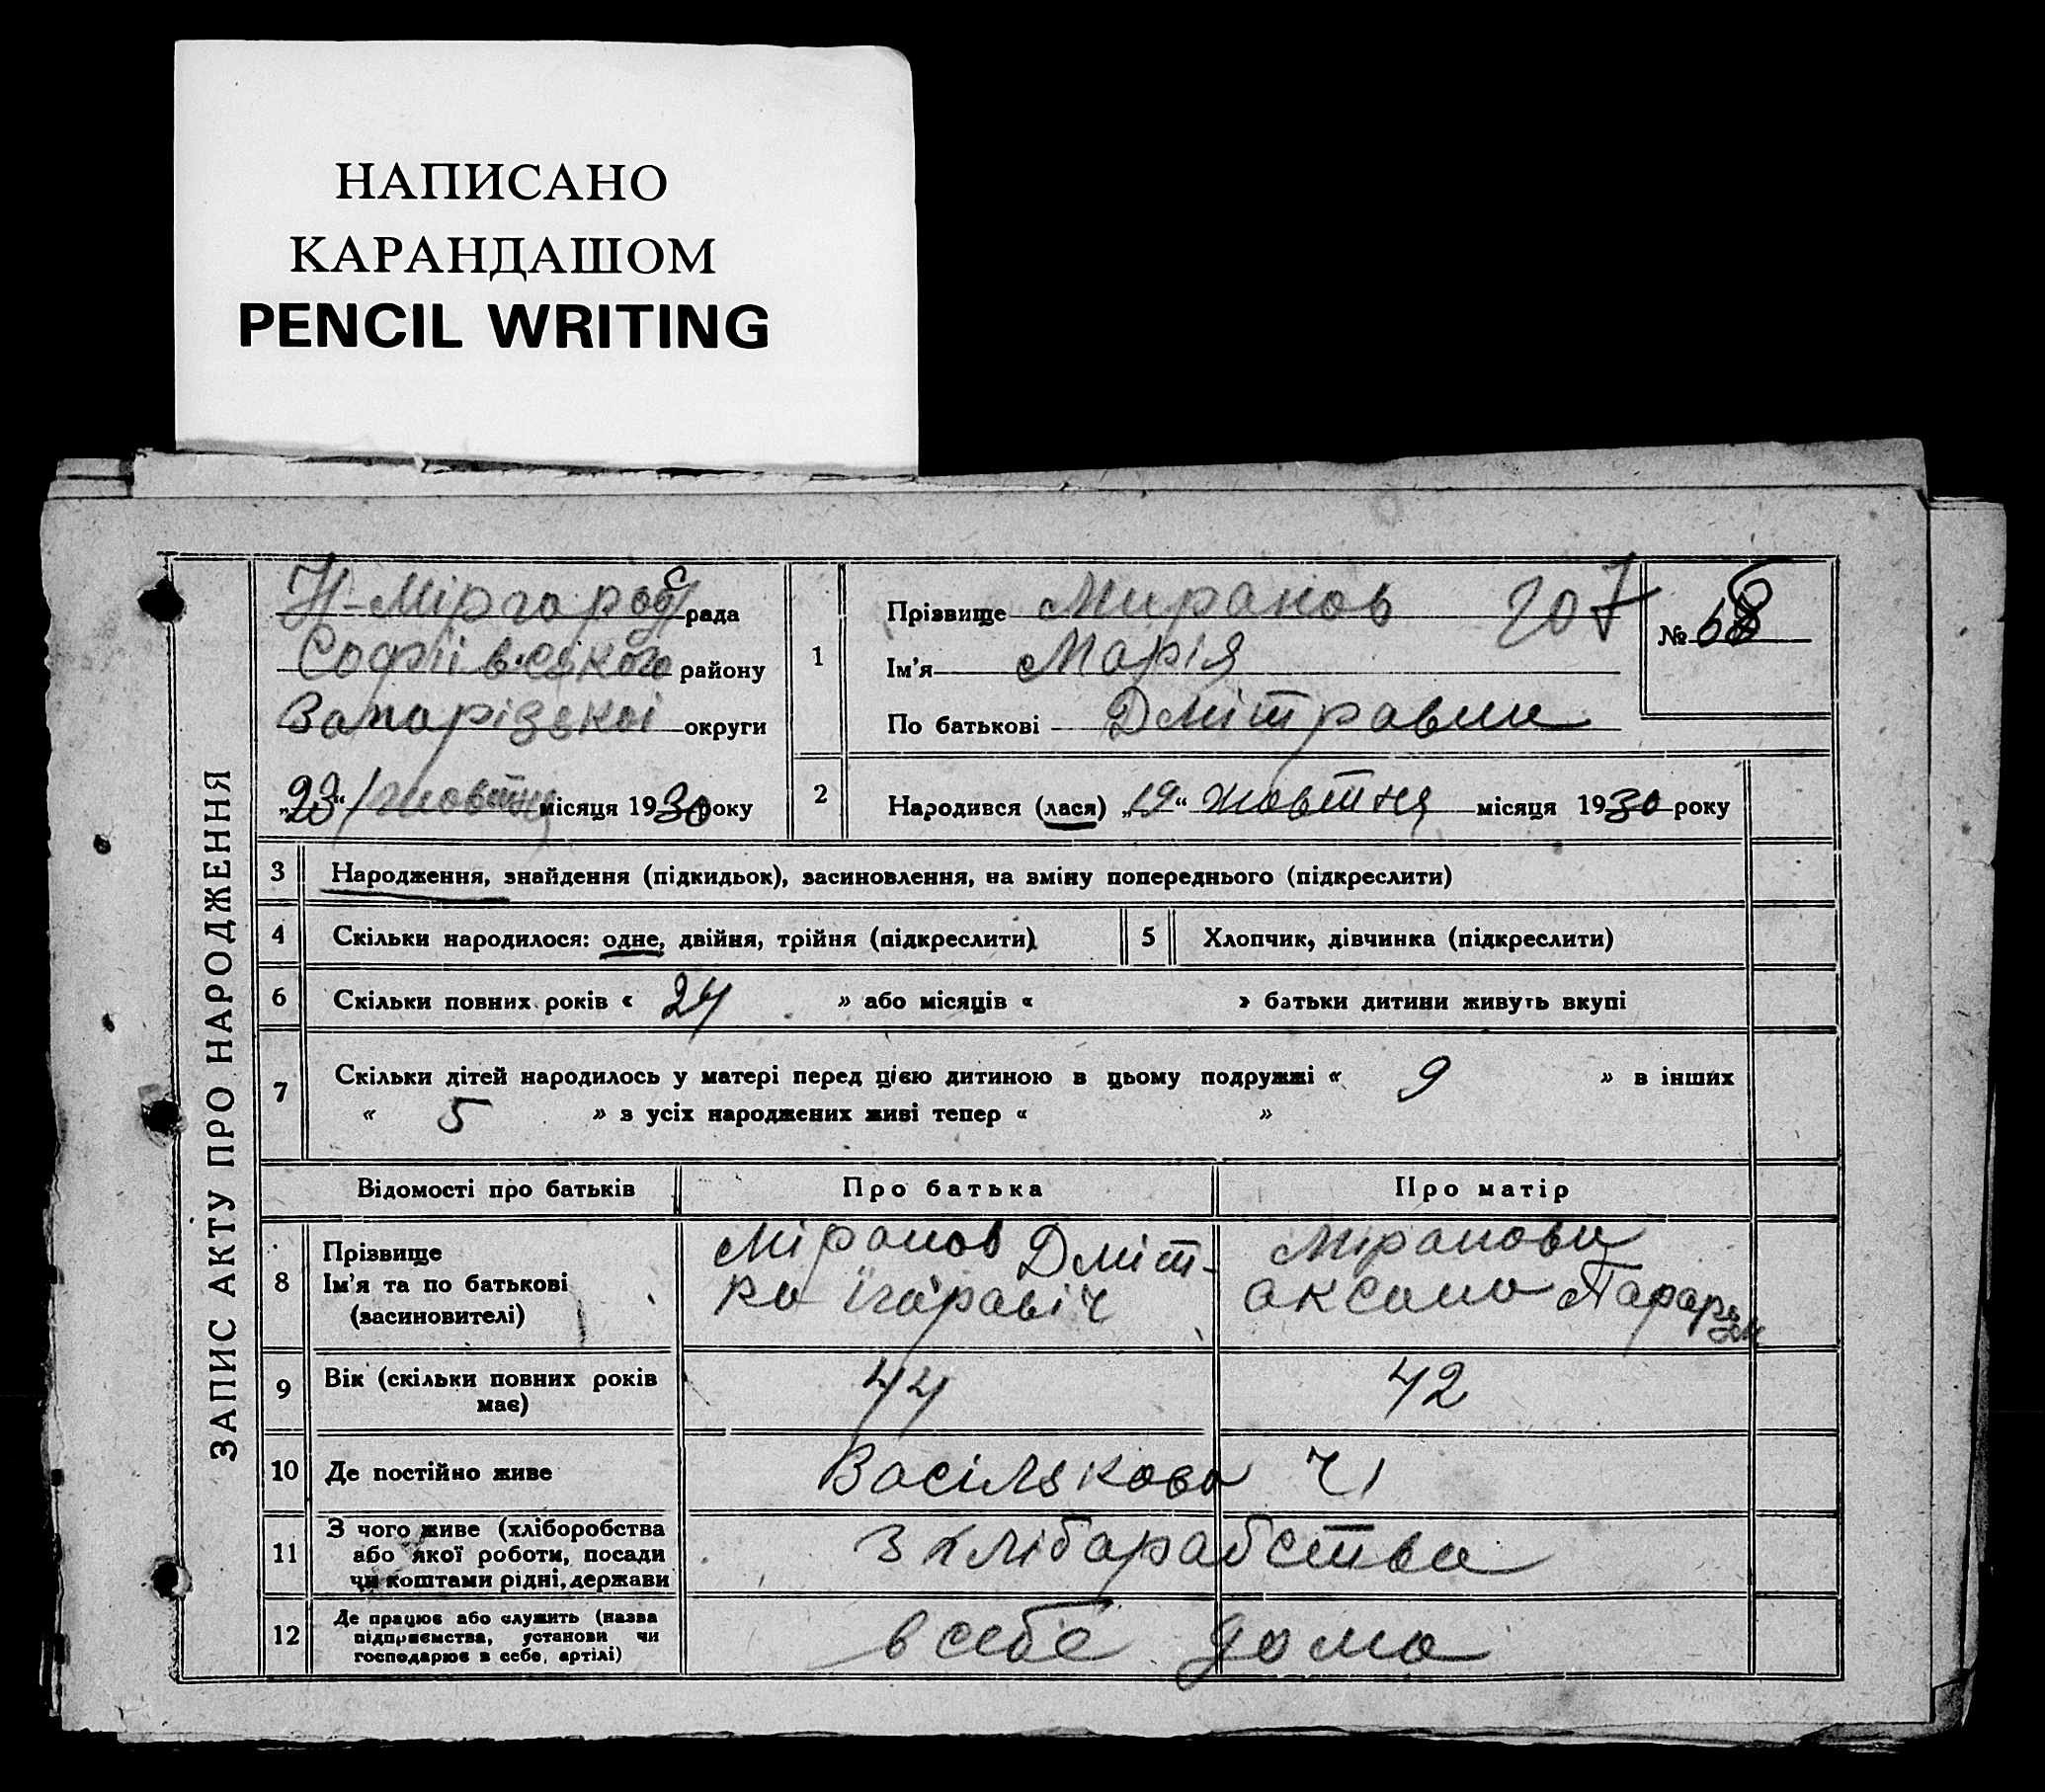 НАПИСАНО
КАРАНДАШОМ
PENCIL WRITING
ЗАПИС АКТУ ПРО НАРОДЖЕННЯ
Н-Міргород рада
Софіівського району
Запорізькоі округи
„23“ жовтня місяця 1930 року
1
Прізвище Миранов 207
Ім'я Марія
По батькові Дмітравни
№ 68
2
Народився (лася) „19“ жовтня місяця 1930 року
3 Народження, знайдення (підкидьок), засиновлення, на зміну попереднього (підкреслити)
4 Скільки народилося: одне, двійня, трійня (підкреслити) 5 Хлопчик, дівчинка (підкреслити)
6 Скільки повних років « 24 » або місяців « » батьки дитини живуть вкупі
7 Скільки дітей народилось у матері перед цією дитиною в цьому подружжі « 9 » в інших
« 5 » з усіх народжених живі тепер « »
Відомості про батьків Про батька Про матір
8 Прізвище
Ім'я та по батькові
(засиновителі)
Міранов Дміт-
ра Ігаравіч
Міранова
Аксана
9 Вік (скільки повних років
має)
44 42
10 Де постійно живе Васількова
11 З чого живе (хліборобства
або якої роботи, посади
чи коштами рідні, держави
З хлібарабства
12 Де працює або служить (назва
підприємства, установи чи
господарює в себе, артілі)
в себе дома